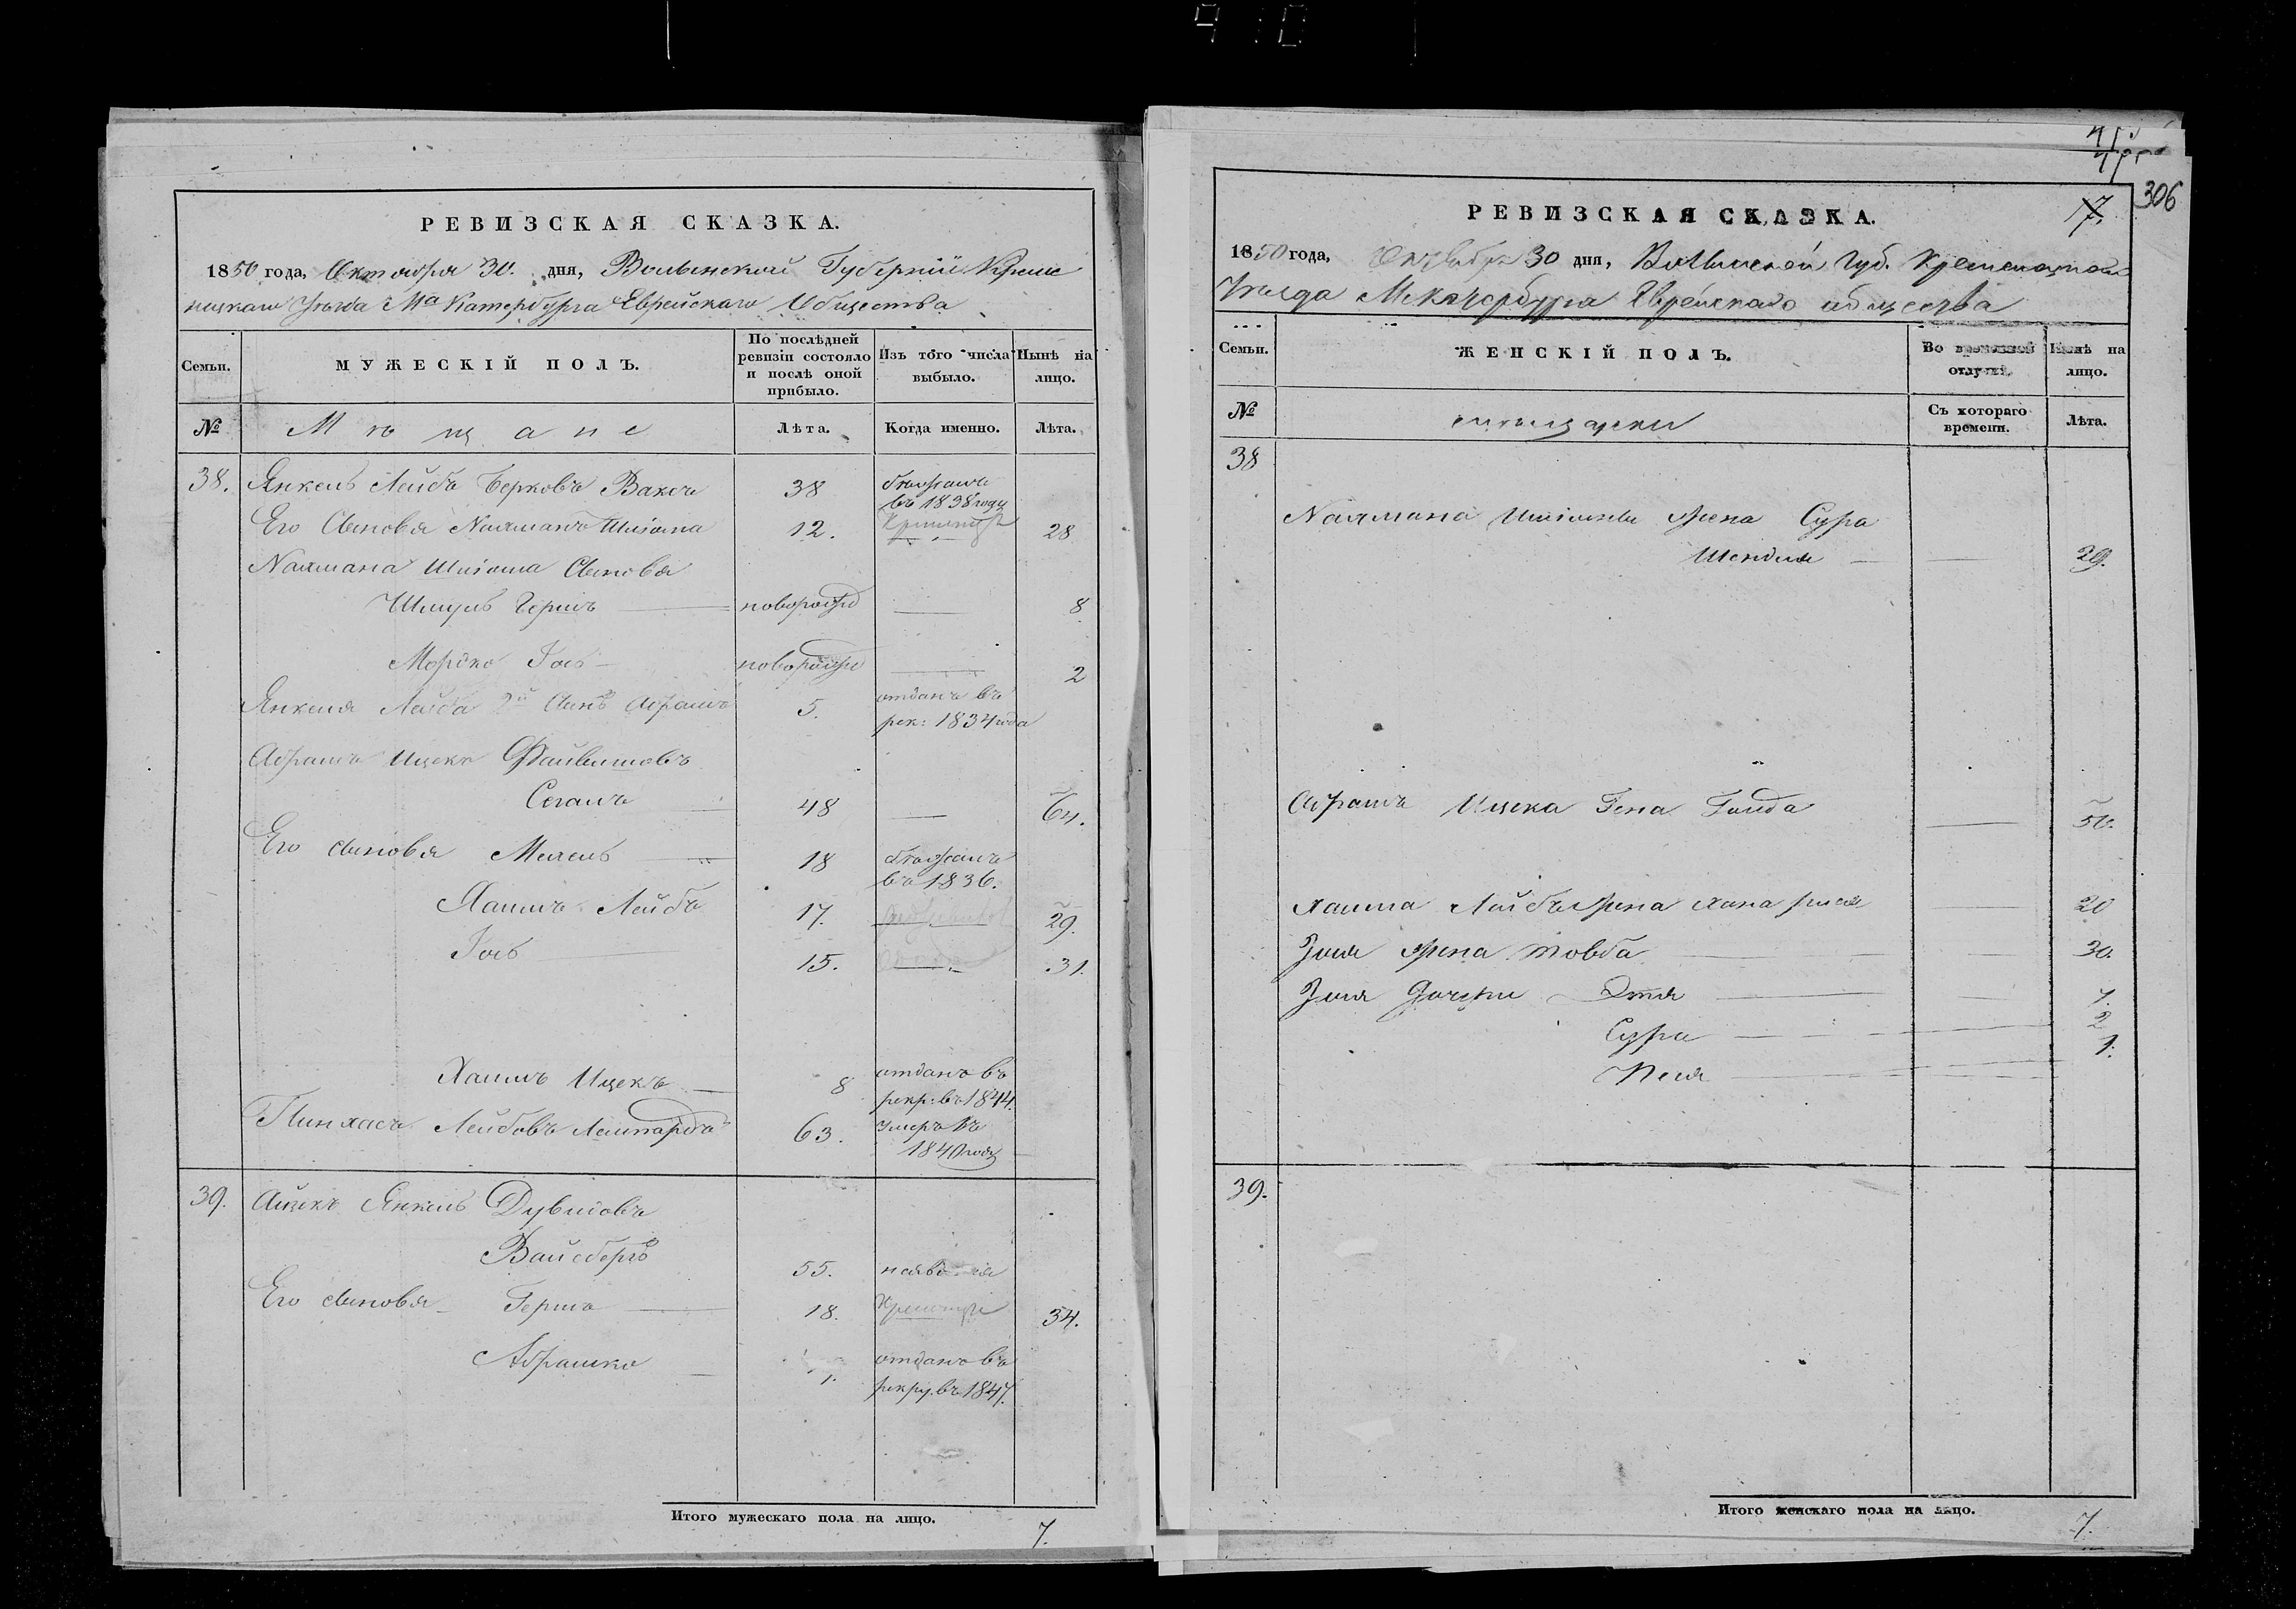 910
РЕВИЗСКАЯ СКАЗКА.
1850 года, Октября 30. дня, Волынской Губерніи Креме
нецкаго Уѣзда Мª Катербурга Еврейскаго Общества
Семьи.
МУЖЕСКІЙ ПОЛЪ.
По послѣдней ревизіи состояло и послѣ оной прибыло.
Изъ того числа выбыло.
Нынѣ на лицо.
№
Мѣщане
Лѣта.
Когда именно.
Лѣта.
38. Янкель Лейбъ Берковъ Ваксъ 38
въ 1838 году
Его Сыновья Нахманъ Шліома 12. 28
Нахмана Шліома Сыновья
Шмуль Гершъ новорожд 8
Мордко Іось новорожд 2
Янкеля Лейба 2й Сынъ Абрамъ 5. отданъ въ
рек: 1834 года
Абрамъ Ицекъ Файвишовъ
Сеганъ 48 64.
Его сыновья 18
въ 1836.
Хаимъ Лейбъ 17. 29.
15. 31.
Хаимъ Ицекъ 8 отданъ въ
рекр: въ 1844.
Пинхасъ Лейбовъ 63. умеръ въ
1840 года
39. Айзикъ Янкель Дувидовъ
Вайсбергъ 55.
Его сыновья Гершъ 18. 34.
Абрашко 1. отданъ въ
рекру. въ 1847.
Итого мужескаго пола на лицо.
7.
306
17.
РЕВИЗСКАЯ СКАЗКА.
1850 года, Октября 30 дня, Волынской Губ. Кременецкаго
Уѣзда М. Катербурга Еврейскаго общества
Семьи.
ЖЕНСКІЙ ПОЛЪ.
Во временной отлучкѣ.
Нынѣ на лицо.
№
мѣщанки
Съ котораго времени.
Лѣта.
38
Нахмана Шліомы жена Сура
Шендля 29.
Абрамъ Ицека жена Голда 50.
Хаима Лейбъ жена Хана 20
жена Товба 30.
дочери Этля 7.
Сура 2
Песя 1.
39.
Итого женскаго пола на лицо.
7.